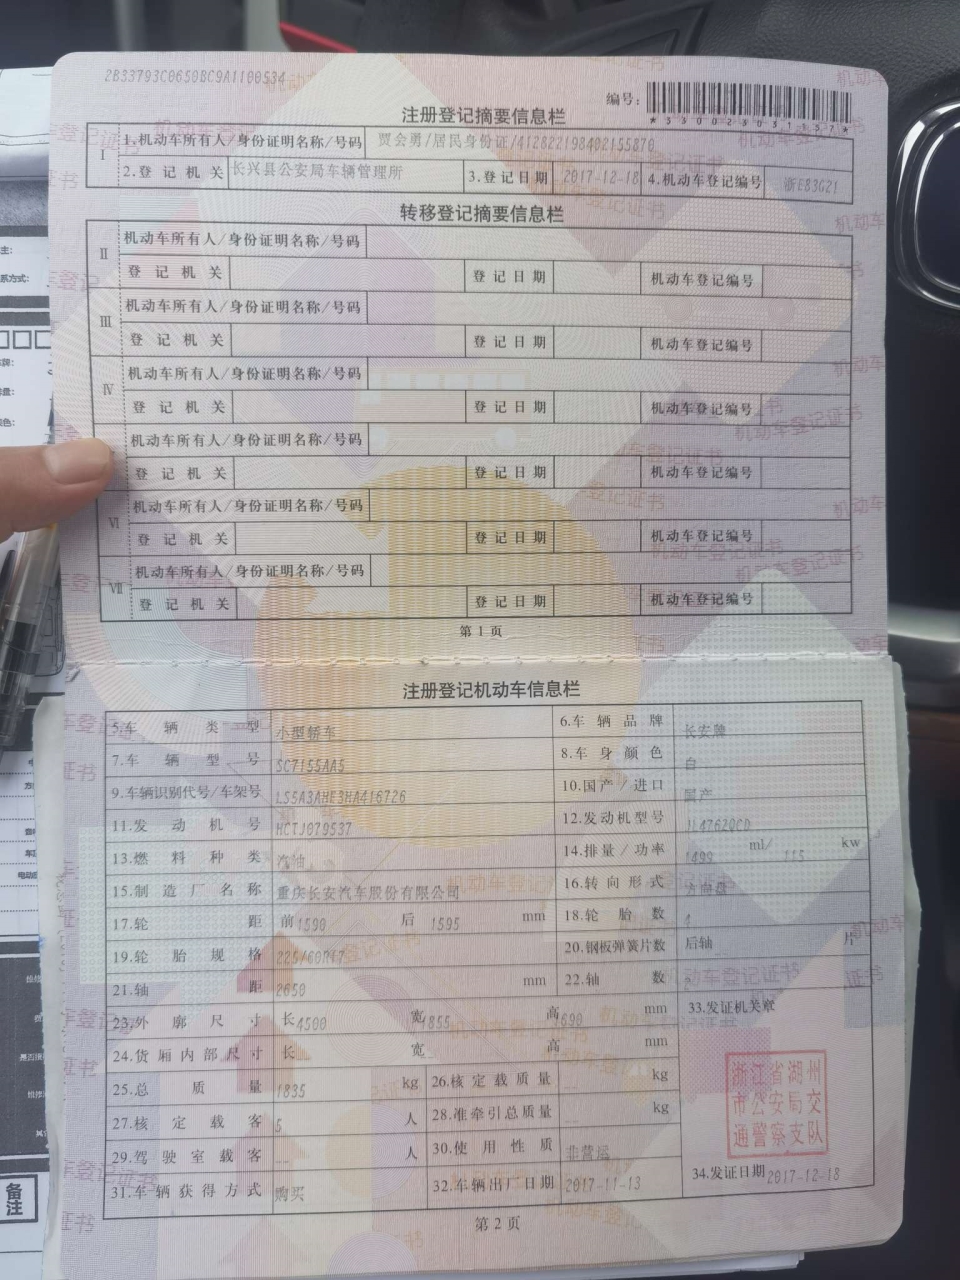 2B33793C0650BC9A1100534
编号:
*330023031737*
注册登记摘要信息栏
I 1.机动车所有人/身份证明名称/号码 贾会勇/居民身份证/412822198402155870
2.登记机关 长兴县公安局车辆管理所 3.登记日期 2017-12-18 4.机动车登记编号 浙E83G21
转移登记摘要信息栏
II 机动车所有人/身份证明名称/号码
登记机关 登记日期 机动车登记编号
III 机动车所有人/身份证明名称/号码
登记机关 登记日期 机动车登记编号
IV 机动车所有人/身份证明名称/号码
登记机关 登记日期 机动车登记编号
机动车所有人/身份证明名称/号码
登记机关 登记日期 机动车登记编号
VI 机动车所有人/身份证明名称/号码
登记机关 登记日期 机动车登记编号
VII 机动车所有人/身份证明名称/号码
登记机关 登记日期 机动车登记编号
第1页
注册登记机动车信息栏
5.车辆类型 小型轿车 6.车辆品牌 长安牌
7.车辆型号 SC7155AA5 8.车身颜色 白
9.车辆识别代号/车架号 LS5A3AHE3HA416726 10.国产/进口 国产
11.发动机号 HCTJ079537 12.发动机型号 JL476ZQCD
13.燃料种类 汽油 14.排量/功率 1499 ml/ 115 kw
15.制造厂名称 重庆长安汽车股份有限公司 16.转向形式 方向盘
17.轮距 前1590 后 1595 mm 18.轮胎数 4
19.轮胎规格 225/60R17 20.钢板弹簧片数 后轴 片
21.轴距 2650 mm 22.轴数
23.外廓尺寸 长4500 宽1855 高1690 mm 33.发证机关章
24.货厢内部尺寸 长 宽 高 mm
25.总质量 1835 kg 26.核定载质量 kg
27.核定载客 5 人 28.准牵引总质量 kg
29.驾驶室载客 人 30.使用性质 非营运
31.车辆获得方式 购买 32.车辆出厂日期 2017-11-13
浙江省湖州
市公安局交
通警察支队
34.发证日期 2017-12-18
第2页
备注